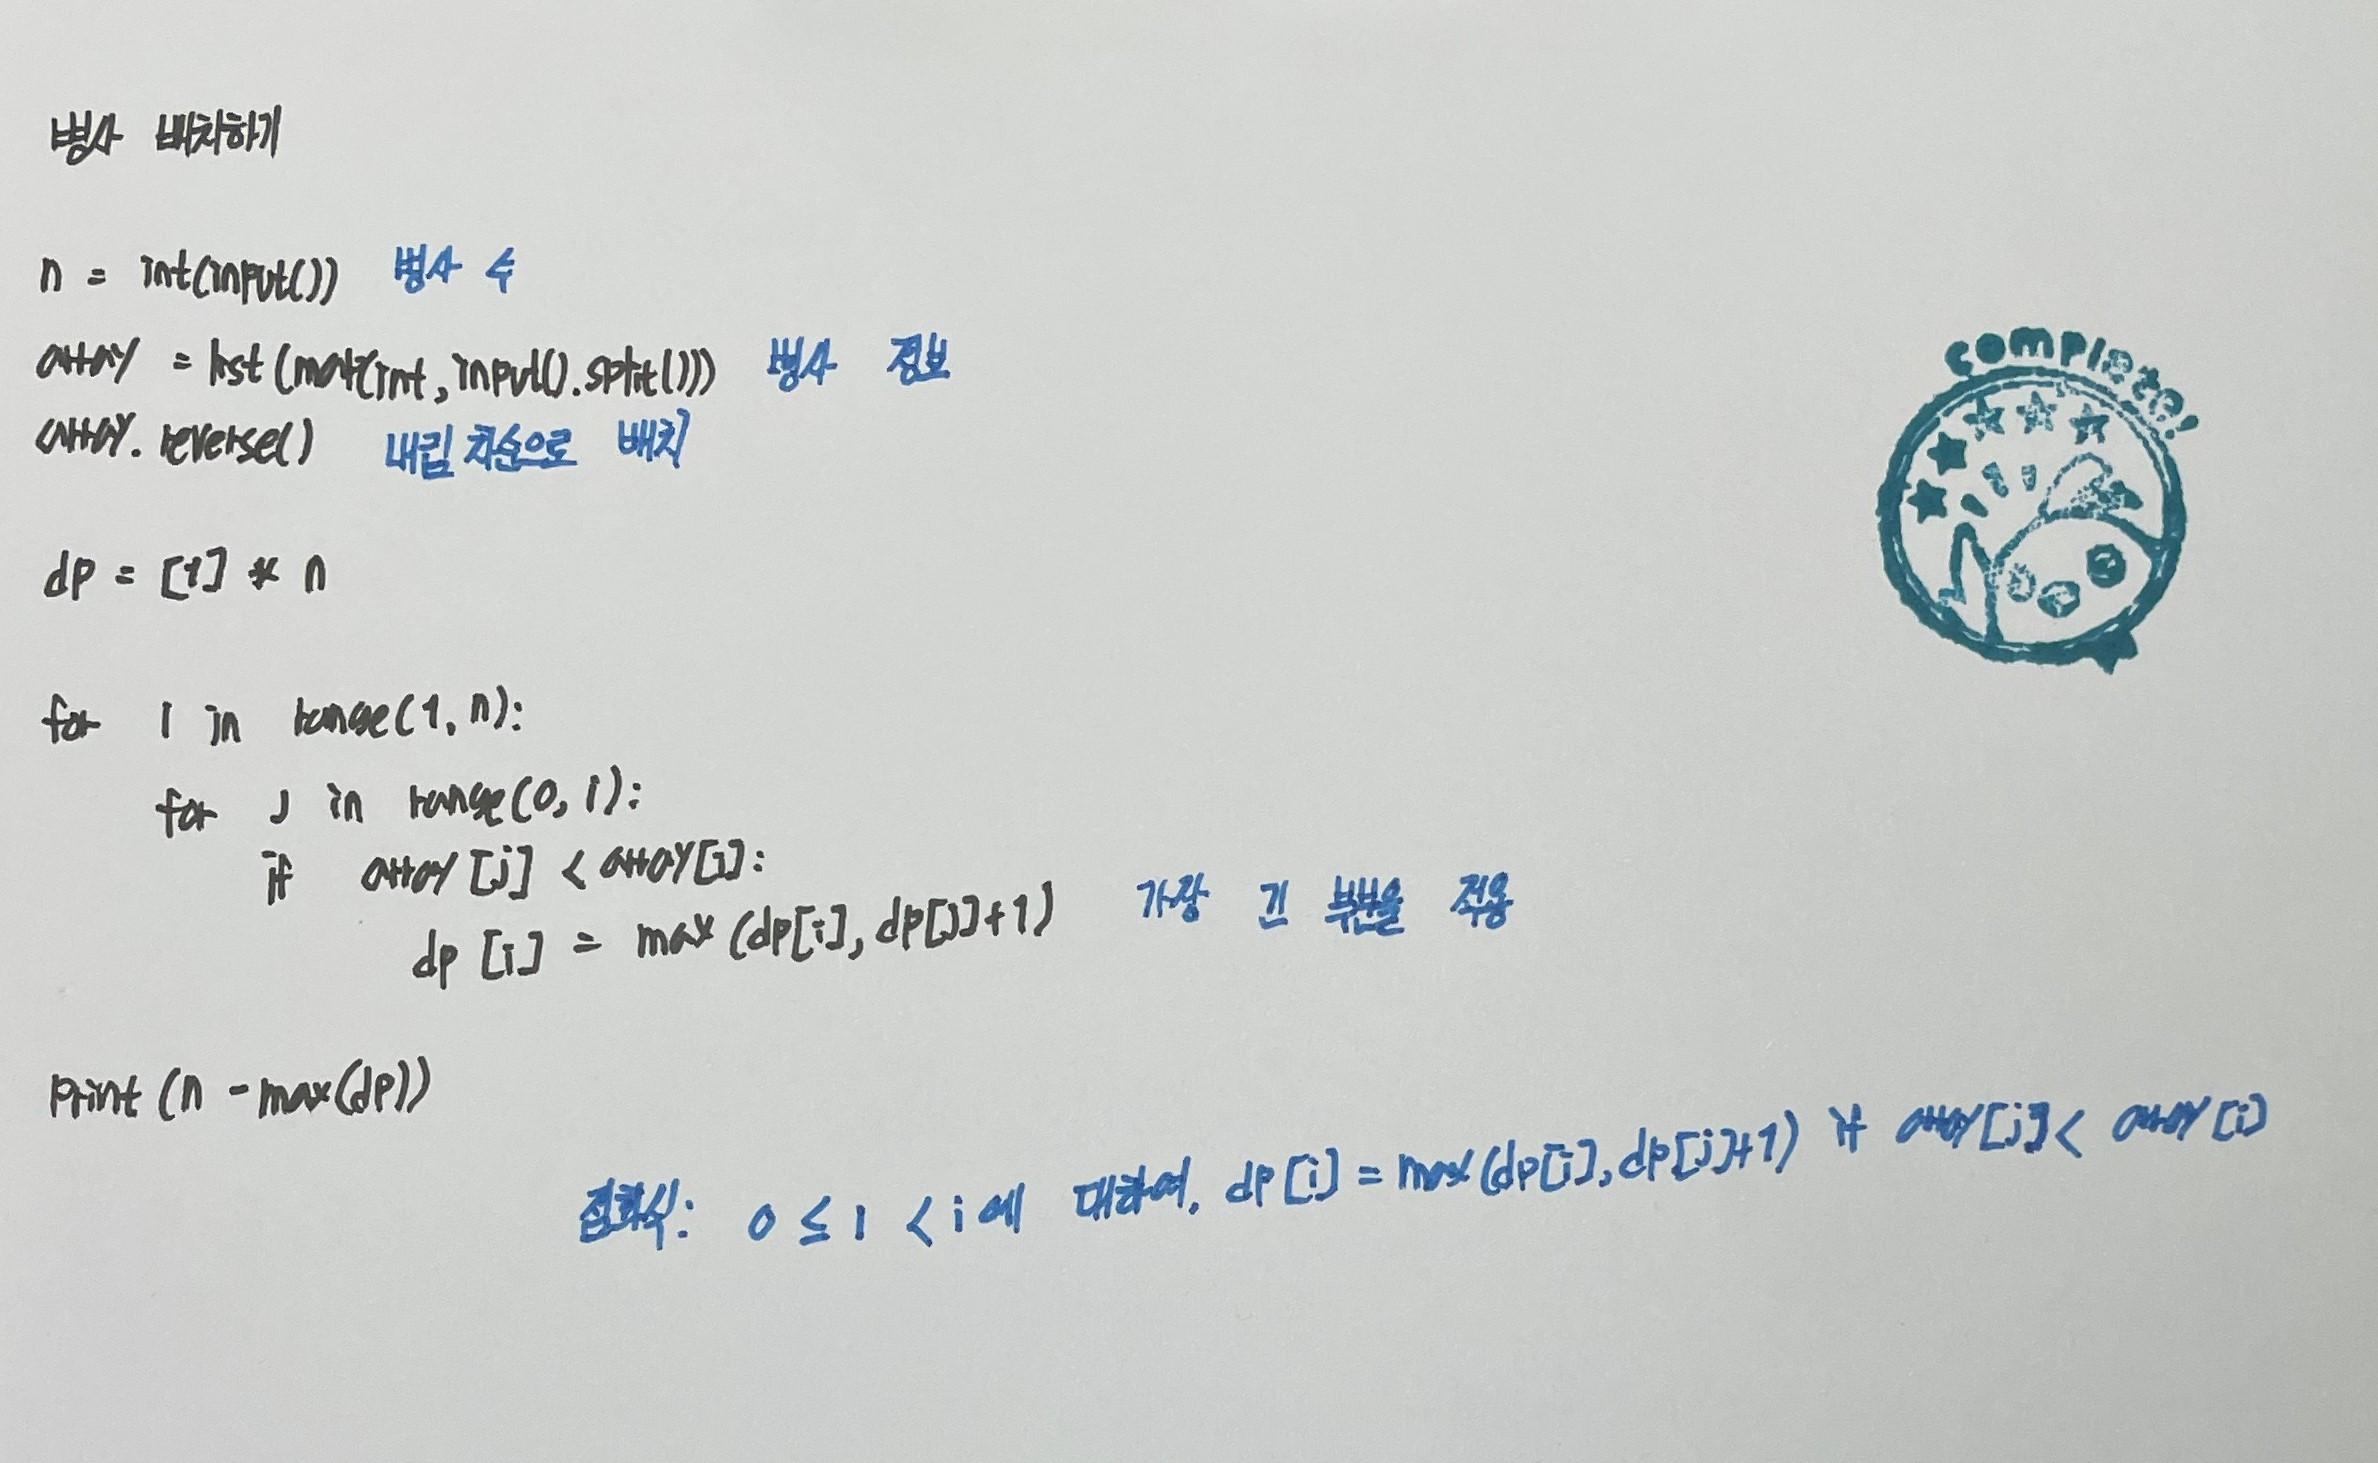 병사 배치하기
n = int(input()) 병사 수
array = list(map(int, input().split())) 병사 정보
array.reverse() 내림 차순으로 배치
dp = [1] * n
for i in range(1, n):
for j in range(0, i):
if array[j] < array[i]:
dp[i] = max(dp[i], dp[j]+1) 가장 긴 부분을 적용
print(n - max(dp))
점화식: 0 ≤ i < i에 대하여, dp[i] = max(dp[i], dp[j]+1) if array[j] < array[i]
complete!